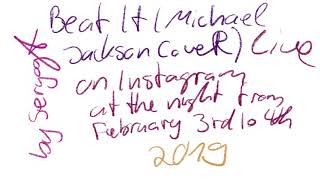 Beat It (Michael
Jackson CoveR) Live
on Instagram
at the night from
February 3rd to 4th
2019
by Seryogʌ